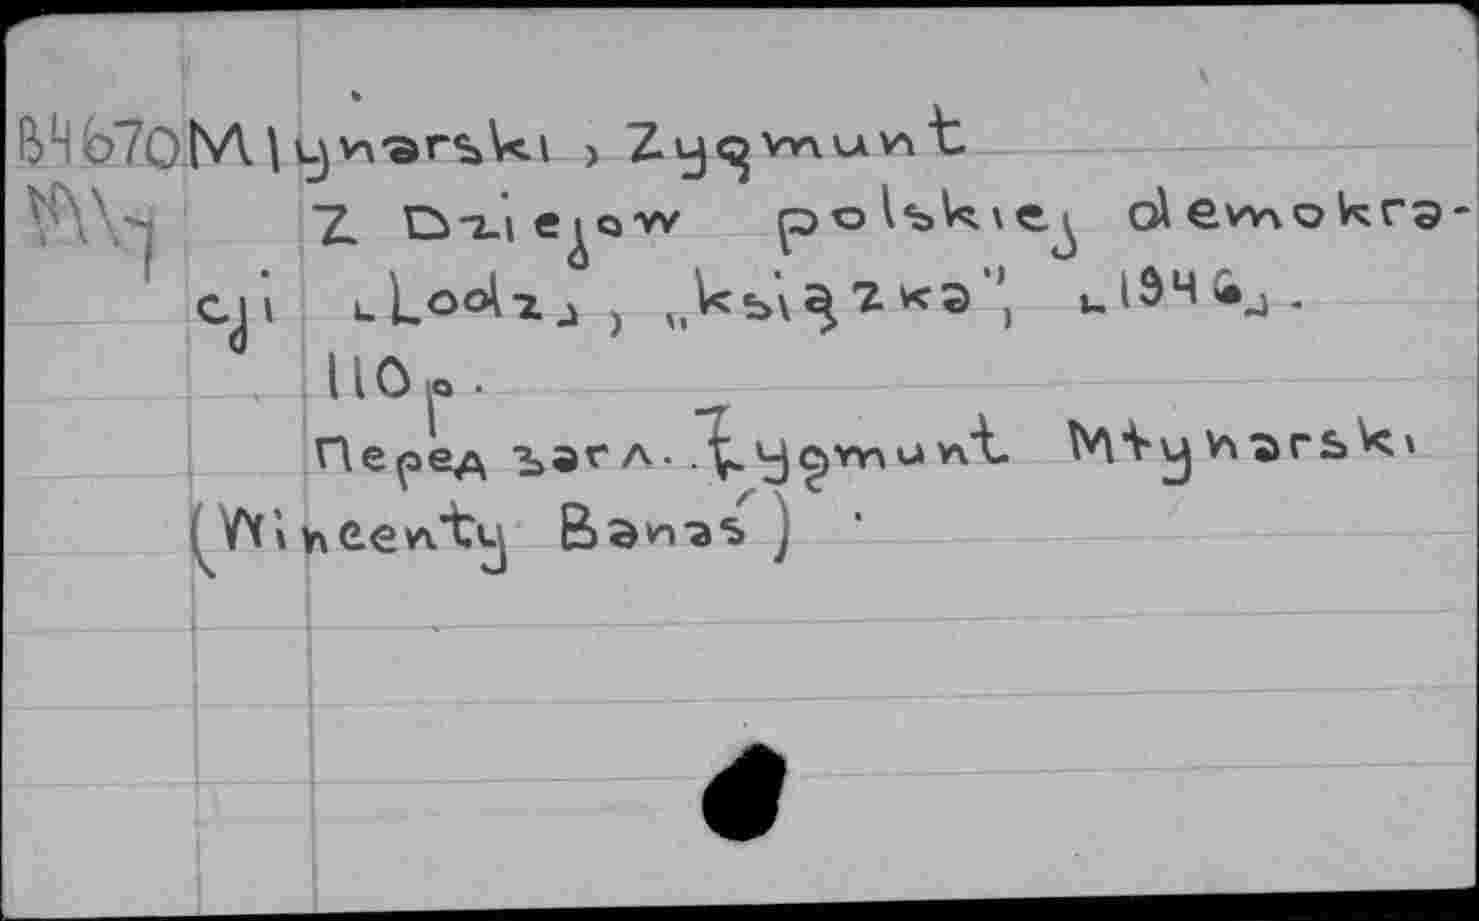 B4670 Mlynarski, Zygmunt
Z Dziejow polskiej demokra-
cji [Lodz], "książka", [1946].
110 p.
Перед загл. Zygmunt Młynarski
(Wincenty Banaś)